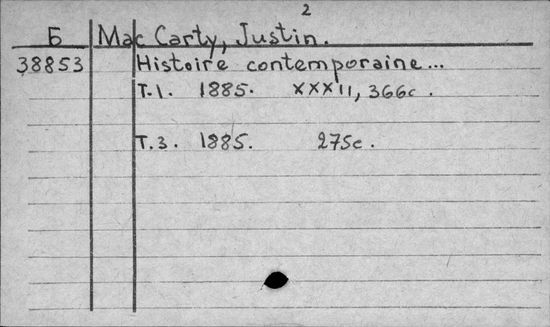 2
Б Mac Carty, Justin.
38853 Histoire contemporaine...
T.1. 1885. XXXII, 366c.
T.3. 1885. 275c.